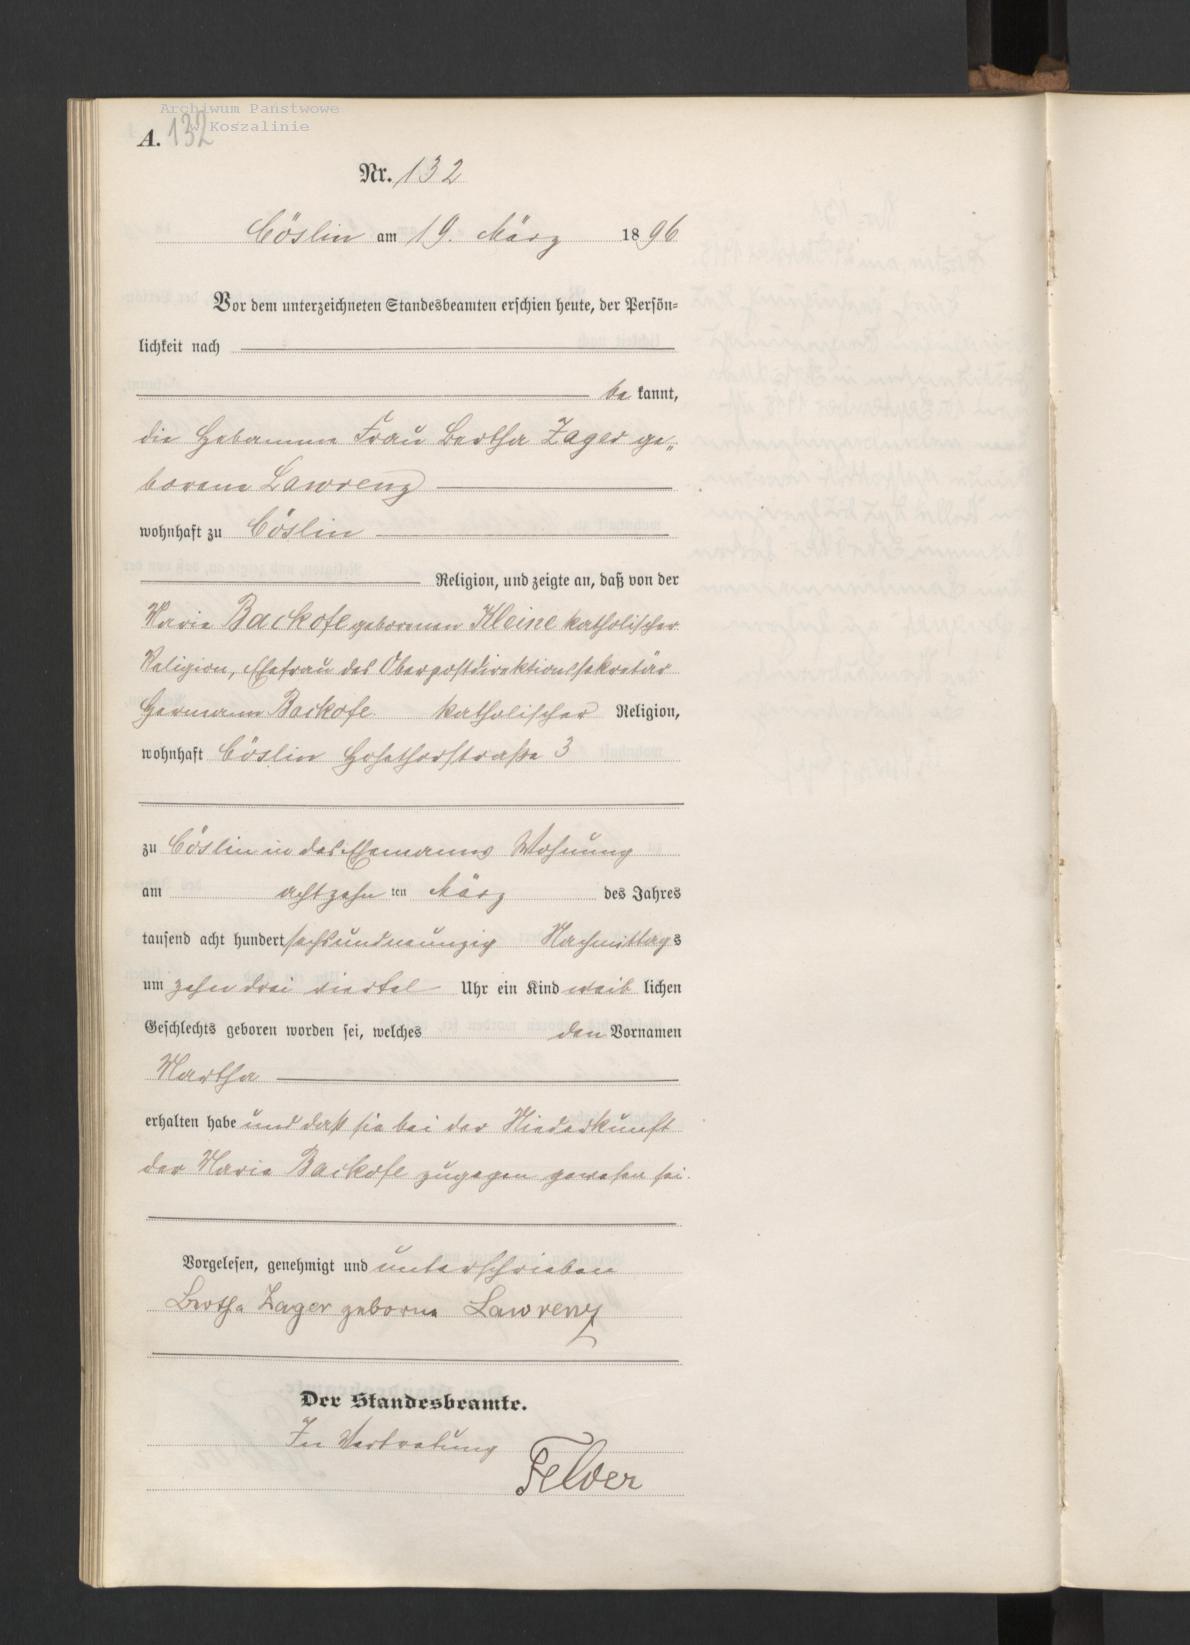 Archiwum Państwowe
w Koszalinie
A. 132
Nr. 132
Cöslin am 19. März 1896
Vor dem unterzeichneten Standesbeamten erschien heute, der Persön=
lichkeit nach
be kannt,
die Hebamme Frau Bertha Zager ge„
borene Lawrenz
wohnhaft zu Cöslin
Religion, und zeigte an, daß von der
Maria Backofe geborenen Kleine katholischer
Religion, Ehefrau des Oberpostdirektionssekretär
Hermann Backofe katholischer Religion,
wohnhaft Cöslin Hohethorstraße 3
zu Cöslin in des Ehemanns Wohnung
am achtzehn ten März des Jahres
tausend acht hundert sechsundneunzig Nachmittags
um zehn drei viertel Uhr ein Kind weib lichen
Geschlechts geboren worden sei, welches den Vornamen
Martha
erhalten habe und daß sie bei der Niederkunft
der Maria Backofe zugegen gewesen sei.
Vorgelesen, genehmigt und unterschrieben
Bertha Zager geborne Lawrenz
Der Standesbeamte.
In Vertretung